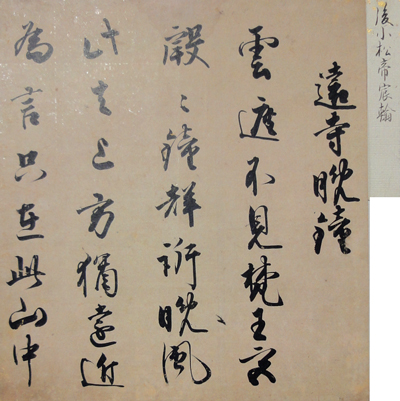 後小松帝宸翰
遠寺晩鐘
雲遮不見梵王宮
殷々鐘聲訴晩風
此去上方猶遠近
為言只在此山中